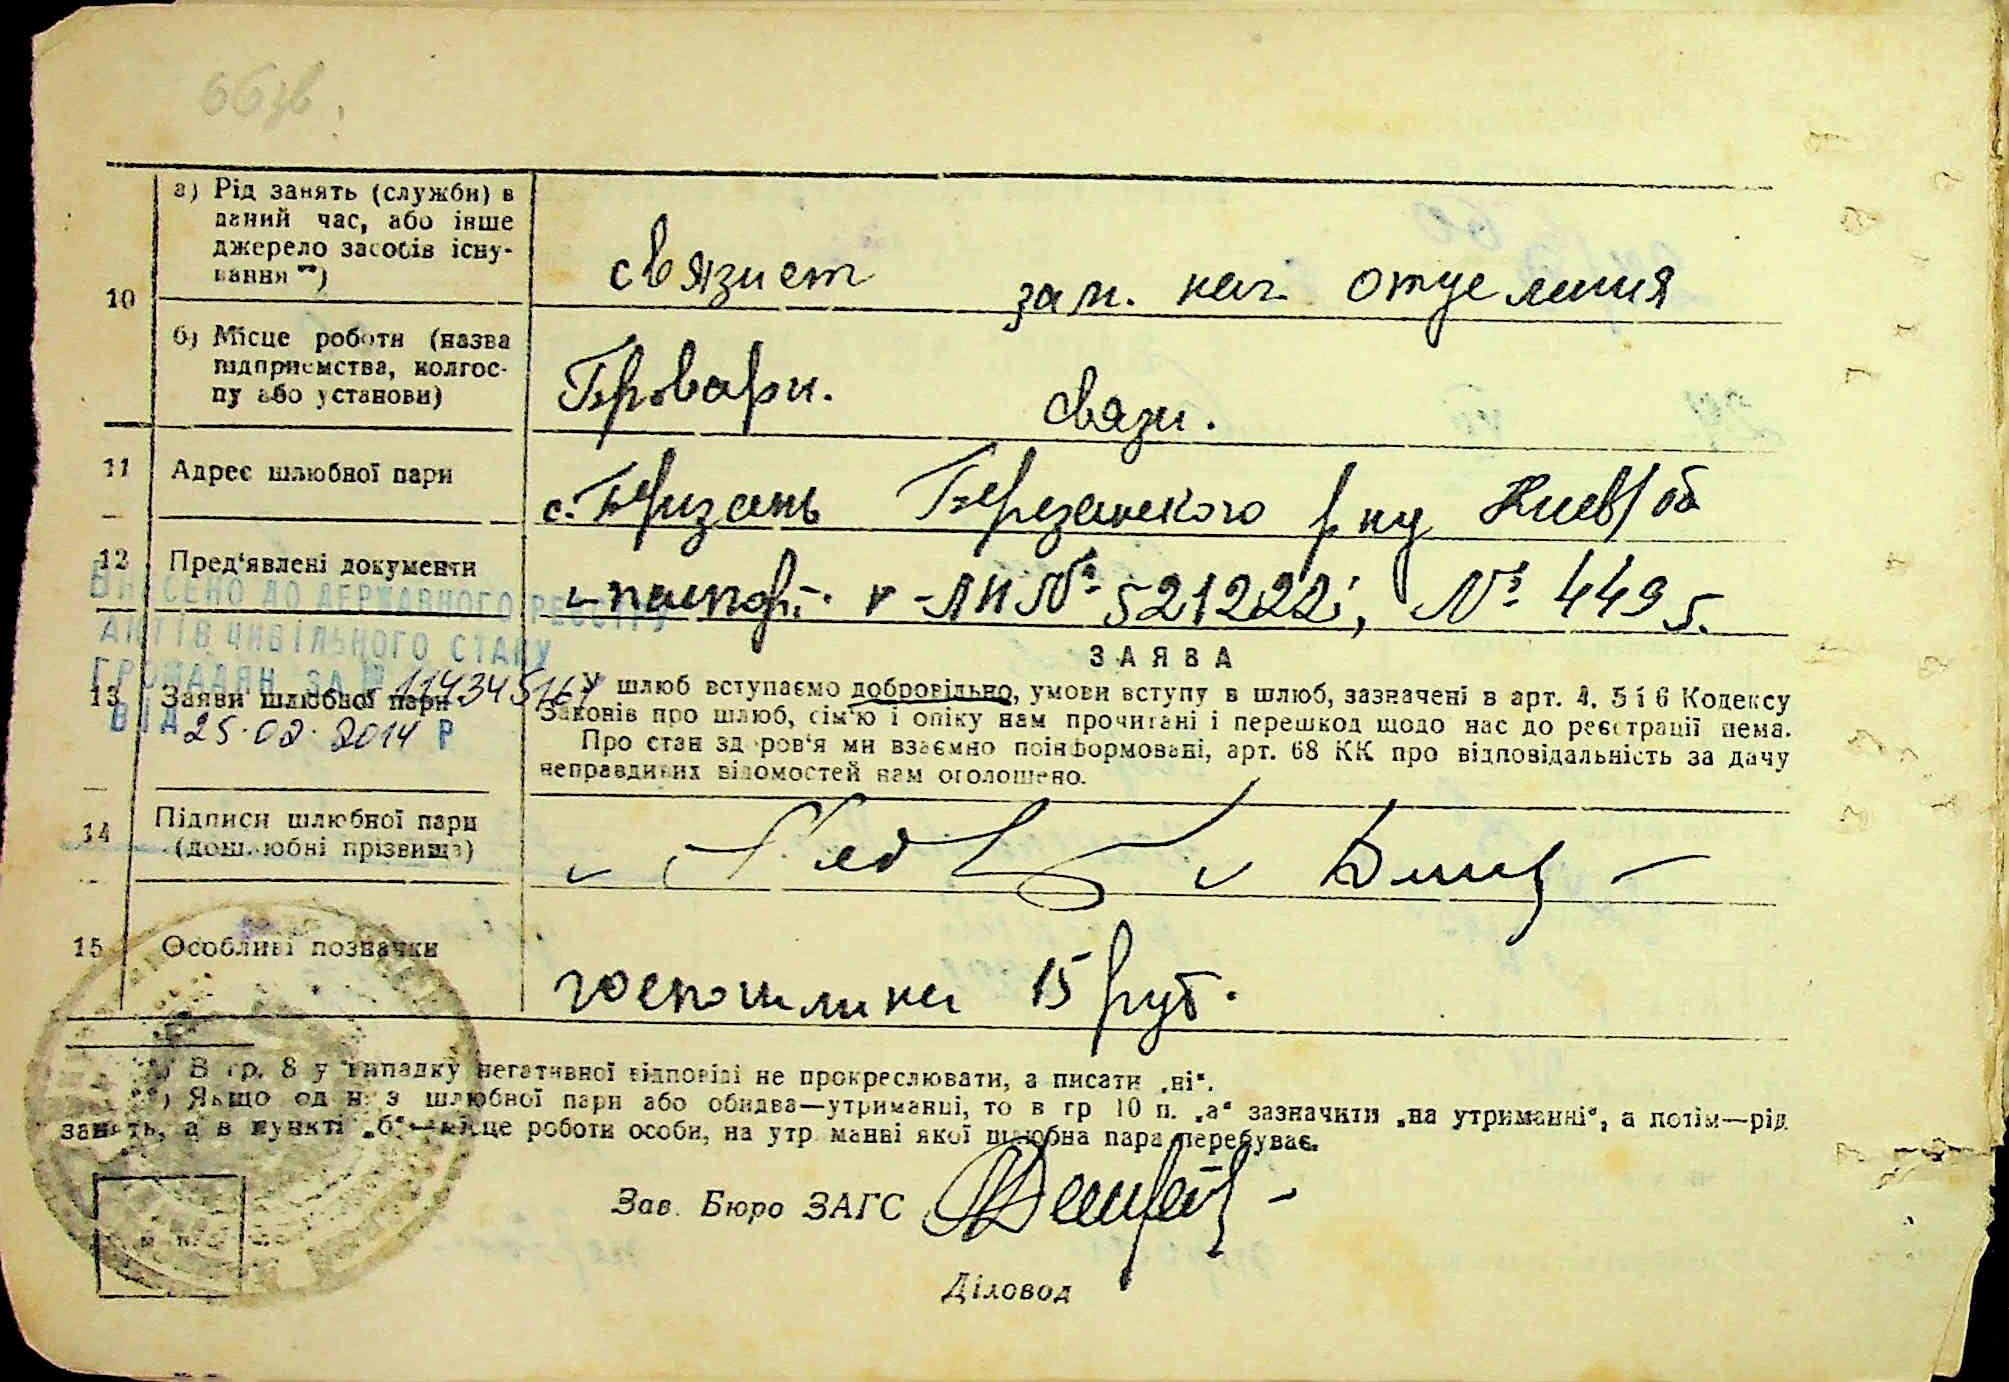 66 зв.
10
а) Рід занять (служби) в
даний час, або інше
джерело засобів існу-
вання **)
связист зам. нач. отделения
б) Місце роботи (назва
підприємства, колгос-
пу або установи)
Бровари. связи.
11 Адрес шлюбної пари
с. Березань Березанского р-ну Киев/об
12 Пред'явлені документи
паспорт. V-ЛИ № 521222; № 4495.
ВНЕСЕНО ДО ДЕРЖАВНОГО РЕЄСТРУ
АКТІВ ЦИВІЛЬНОГО СТАНУ
ГРОМАДЯН ЗА №
ВІД 25.02.2014 Р
ЗАЯВА
13 Заяви шлюбної пари
У шлюб вступаємо добровільно, умови вступу в шлюб, зазначені в арт. 4, 5 і 6 Кодексу
Законів про шлюб, сім'ю і опіку нам прочитані і перешкод щодо нас до реєстрації нема.
Про стан здоров'я ми взаємно поінформовані, арт. 68 КК про відповідальність за дачу
неправдивих відомостей нам оголошено.
14 Підписи шлюбної пари
(дошлюбні прізвища)
15 Особливі позначки
госпошлина 15 руб.
*) В гр. 8 у випадку негативної відповіді не прокреслювати, а писати „ні“.
**) Якщо один з шлюбної пари або обидва—утриманці, то в гр 10 п. „а“ зазначити „на утриманні“, а потім—рід
занять, а в пункті „б“—місце роботи особи, на утриманні якої шлюбна пара перебуває.
Зав. Бюро ЗАГС
Діловод